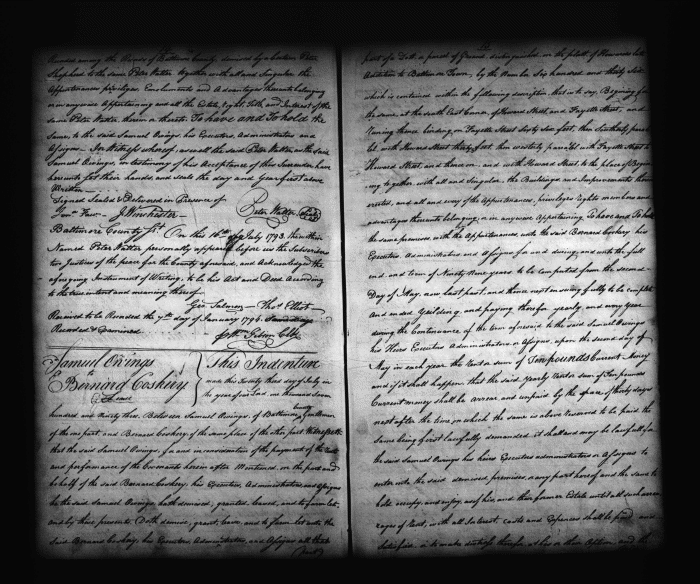 Situated among the
Shepherd to the same Peter Walter together with all and Singular the
Appurtenances privileges Emoluments and Advantages thereunto belonging
or in anywise Appertaining and all the Estate, Right, Title and Interest of the
same Peter Walter therein or thereto To have and To hold the
Same, to the said Samuel Owings, his Executors, Administrators and
Assigns. In Witness whereof, as well the said Peter Walter, as the said
Samuel Owings, in testimony of his Acceptance of this Surrender have
hereunto put their hands and seals the day and year first above
Written
Signed Sealed & Delivered in Presence of
J. Winchester Peter Walter
Baltimore County Sct. On this 16th of July 1793. the within
Named Peter Walter personally appears before us the Subscribers
two Justices of the peace for the County aforesaid, and Acknowledged the
aforegoing Instrument of Writing to be his Act and Deed According
to the true intent and meaning thereof
Geo Salmon Thos Elliot
Received to be Recorded the 7th day of January 1794
Recorded & Examined
Samuel Owings
to
Bernard Coskery
Lease
This Indenture
made this Twenty third day of July in
the year of our Lord one thousand seven
hundred and ninety three Between Samuel Owings, of Baltimore County, Gentleman
of the one part, and Bernard Coskery, of the same place of the other part Witnesseth
that the said Samuel Owings, for and in consideration of the payment of the Rent
and performance of the Covenants herein after Mentioned, on the part and
behalf of the said Bernard Coskery, his Executors, Administrators, and Assigns
he the said Samuel Owings, hath demised, granted, leased, and to farm let,
and by these presents Doth demise, grant, lease, and to farm let unto the
said Bernard Coskery, his Executors, Administrators, and Assigns all that
part of a Lott or parcel of Ground distinguished, on the platt of Howards late
Addition to Baltimore Town, by the Number Six hundred and thirty Six
which is contained within the following description, that is to say, Beginning for
the same, at the south East Corner, of Howard Street, and Fayette Street, and
Running thence binding on Fayette Street Sixty Six feet, then Southerly paral
lel with Howard Street thirty feet, then westerly parallel with Fayette Street to
Howard Street, and thence on and with Howard Street to the place of Begin
ning together, with all and singular, the Buildings and Improvements there
erected, and all and every of the Appurtenances, privileges Rights members and
advantages thereunto belonging, or in anywise Appertaining To have and To hold
the same premises, with the Appurtenances unto the said Bernard Coskery his
Executors Administrators and Assigns for and during, and unto the full
end and term of Ninety Nine years to be computed from the second
Day of May, now last past, and thence next ensuing fully to be complete
and ended Yielding and paying therefor yearly and every year
during the Continuance of the term aforesaid to the said Samuel Owings
his Heirs Executors Administrators or Assigns, upon the second day of
May in each year the Rent or sum of Ten pounds Current Money
and if it shall happen that the said Yearly Rent or Sum of Ten pounds
Current money shall be arrear and unpaid by the space of thirty days
next after the time on which the same is above reserved to be paid the
same being first lawfully demanded it shall and may be lawful for
the said Samuel Owings his heirs Executors administrators or Assigns to
enter into the said demised premises, or any part thereof and the same to
hold, occupy, and enjoy as of his, and their former Estate until all such arrea
rages of Rent, with all Interest, costs and Expences shall be paid and
satisfied, or to make distress therefor, at his or their Option, and the